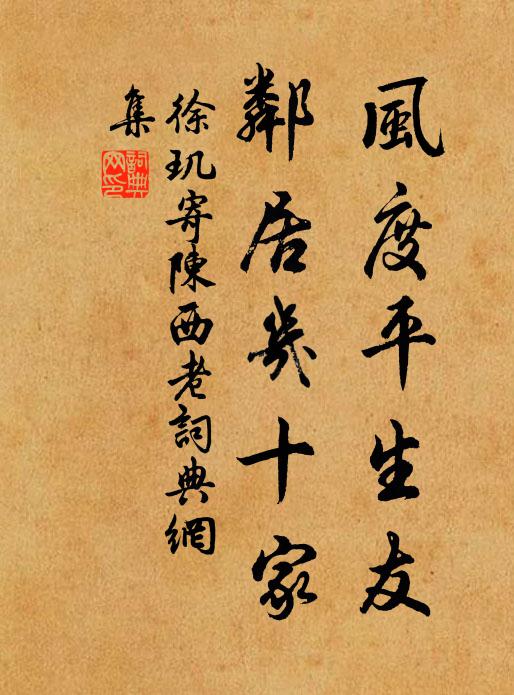 風度平生友
鄰居幾十家
徐璣寄陳西老詞典網
集
詞典
网印